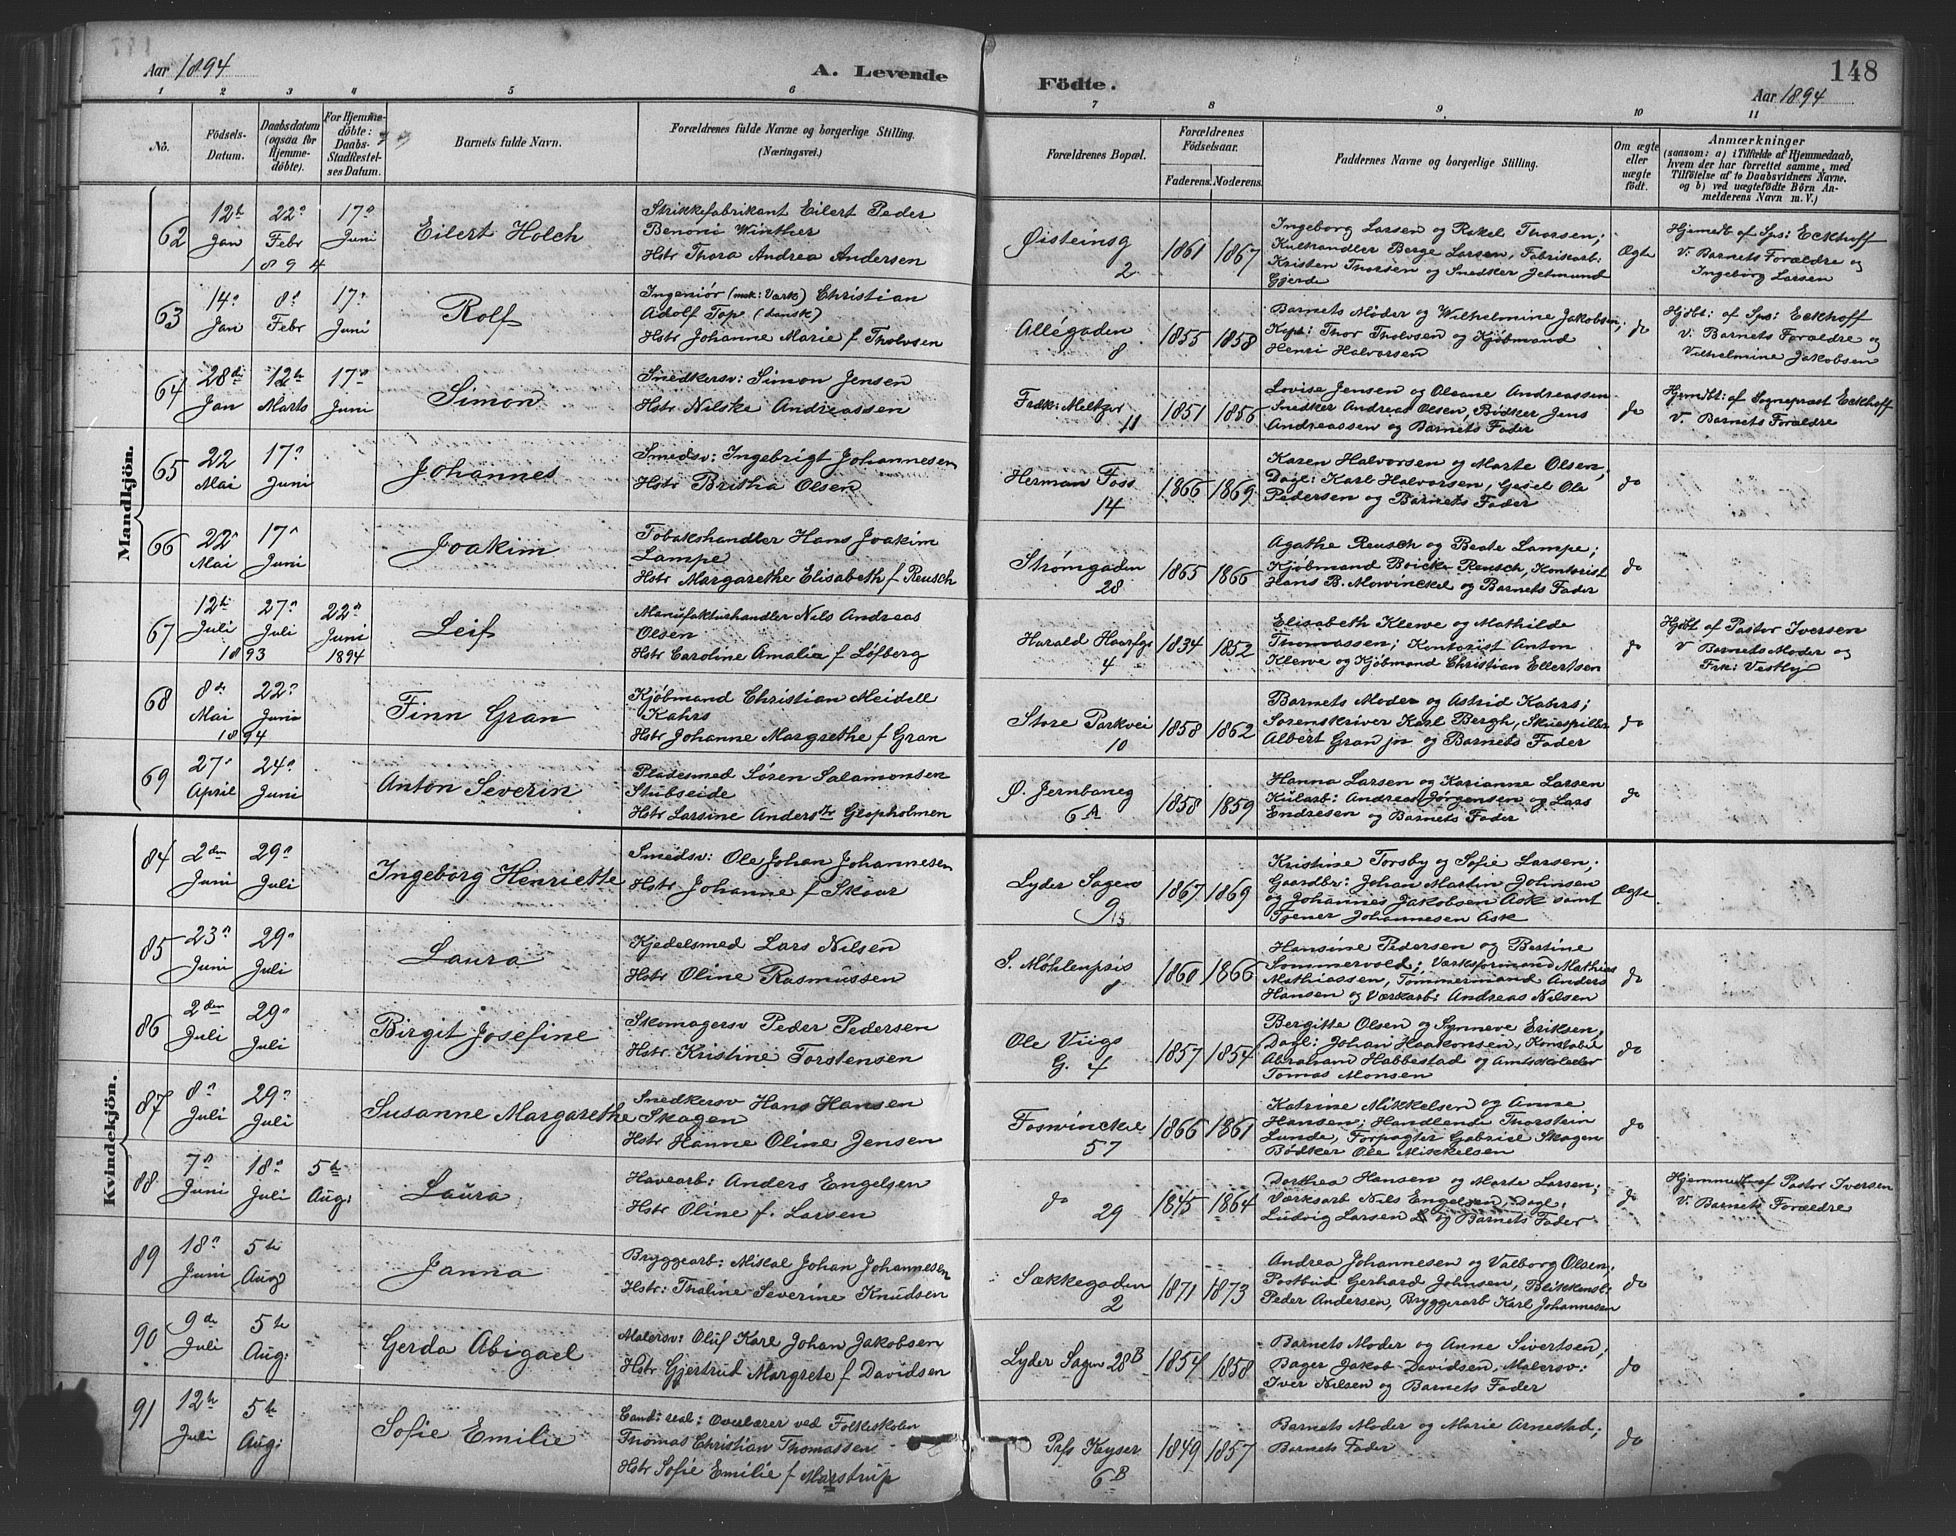 148
Aar 1894
A. Levende
Födte.
Aar 1894
1 2 3 4 5 6 7 8 9 10 11
No.
Födsels-
Datum.
Daabsdatum
(ogsaa for
Hjemme-
döbte).
For Hjemme-
döbte:
Daabs-
Stadfæstel-
ses Datum.
Barnets fulde Navn.
Forældrenes fulde Navne og borgerlige Stilling.
(Næringsvei.)
Forældrenes Bopæl.
Forældrenes
Födselsaar.
Faderens. Moderens.
Faddernes Navne og borgerlige Stilling.
Om ægte
eller
uægte
født.
Anmærkninger
(saasom: a) i Tilfælde af Hjemmedaab,
hvem der har forrettet samme, med
Tilföielse af to Daabsvidners Navne.
og b) ved uægtefödte Börn An-
melderens Navn m. V.)
Mandkjön.
62
12te Jan
22n Febr
1894
17n Juni
Eilert Holch
Strikkefabrikant Eilert Peder
Benoni Winther
Hstr Thora Andrea Andersen
Øisteinsg
2
1861 1867
Ingeborg Larsen og Rakel Thorsen;
Kulhandler Berge Larsen, Fabrikarb:
Kristen Thorsen og Snedker Jetmund
Gjerde
Ægte
Hjemdbt af Sps: Eckhoff
V. Barnets Forældre og
Ingeborg Larsen
63
14n Jan
8n Febr
17n Juni
Rolf
Ingeniør (mek: Værk) Christian
Adolf Top (dansk)
Hstr Johanne Marie f Tholvsen
Allégaden
8
1855 1858
Barnets Moder og Wilhelmine Jakobsen;
Kapt: Thor Tholvsen og Kjøbmand
Henri Halvorsen
do
Hjdbt: af Sps: Eckhoff
V: Barnets Forældre og
Vilhelmine Jakobsen
64
28de Jan
12te Marts
17n Juni
Simon
Snedkersv: Simon Jensen
Hstr Nilske Andreassen
Fredk: Meltzer
11
1851 1856
Lovise Jensen og Oleane Andreassen
Snedker Andreas Olsen, Bødker Jens
Andreassen og Barnets Fader
do
Hjemdbt: af Sogneprest Eckhoff
V. Barnets Forældre
65
22 Mai
17n Juni
Johannes
Smedsv: Ingebrigt Johannesen
Hstr Britha Olsen
Herman Foss
14
1866 1869
Karen Halvorsen og Marte Olsen;
Dagl: Karl Halvorsen, Gesel Ole
Pedersen og Barnets Fader
do
66
22 Mai
17n Juni
Joakim
Tobakshandler Hans Joakim
Lampe
Hstr Margarethe Elisabeth f Reusch
Strømgaden
28
1865 1866
Agathe Reusch og Beate Lampe;
Kjøbmand Boicke Reusch, Kontorist
Hans B. Mowinckel og Barnets Fader
do
67
12te Juli
1893
27n Juli
22n Juni
1894
Leif
Manufakturhandler Nils Andreas
Olsen
Hstr Caroline Amalia f Løfberg
Harald Haarfgs
4
1834 1852
Elisabeth Klewe og Mathilde
Thomassen; Kontorist Anton
Klewe og Kjøbmand Christian Ellertsen
do
Hjdbt af Pastor Iversen
V Barnets Moder og
Frk: Vestby
68
8de Mai
22n Juni
1894
Finn Gran
Kjøbmand Christian Meidell
Kahrs
Hstr Johanne Margrethe f Gran
Store Parkvei
10
1858 1862
Barnets Moder og Astrid Kahrs;
Sorenskriver Karl Bergh, Skuespiller
Albert Gran jn og Barnets Fader
do
69
27n April
24n Juni
Anton Severin
Pladesmed Søren Salamonsen
Stubseide
Hstr Larsine Andersdtr Glopholmen
Ø. Jernbaneg
6A
1858 1859
Hanna Larsen og Karianne Larsen
Kularb: Andreas Jørgensen og Lars
Endresen og Barnets Fader
do
Kvindekjön.
84
2den Juni
29n Juli
Ingeborg Henriette
Smedsv: Ole Johan Johannesen
Hstr Johanne f Skaar
Lyder Sagens
9
1867 1869
Kristine Torsby og Sofie Larsen;
Gaardbr: Johan Martin Johnsen
og Johannes Jakobsen Ask samt
Johannesen Ask
Ægte
85
23n Juni
29n Juli
Laura
Kjedelsmed Lars Nilsen
Hstr Oline Rasmussen
S. Møhlenpris
8
1860 1866
Hansine Pedersen og Bertine
Sommervold; Værksformand Mathias
Mathiassen, Tømmermand Anders
Hansen og Værkarb: Andreas Nilsen
do
86
2den Juli
29n Juli
Birgit Josefine
Skomagersv Peder Pedersen
Hstr Kristine Torstensen
Ole Viigs
G. 4
1857 1854
Bergitte Olsen og Synneve Eriksen,
Dagl: Johan Haakonsen, Konstabel
Abraham Habbestad og Amtsskoleelev
Tomas Monsen
do
87
8n Juli
29n Juli
Susanne Margarethe
Snedkersv Hans Hansen
Skagen
Hstr Hanne Oline Jensen
Foswinckel
57
1866 1861
Katrine Mikkelsen og Anne
Hansen; Handlende Thorstein
Lunde, Forpagter Gabriel Skagen
Bødker Ole Mikkelsen
do
88
7n Juni
18n Juli
5te Aug:
Laura
Havearb: Anders Engelsen
Hstr Oline f. Larsen
do
29
1845 1864
Dorthea Hansen og Marte Larsen;
Værksarb Nils Engelsen, Dagl,
Ludvig Larsen og Barnets Fader
do
Hjemmedbt af Pastor Iversen
V: Barnets Forældre
89
18n Juni
5te Aug
Janna
Bryggearb: Mikal Johan Johannesen
Hstr: Thaline Severine Knudsen
Sækkegaden
2
1871 1873
Andrea Johannesen og Valborg Olsen;
Postbud Gerhard Johnsen, Blikkensl:
Peder Andersen, Bryggearb Karl Johannesen
do
90
9de Juli
5te Aug:
Gerda Abigael
Malersv: Oluf Karl Johan Jakobsen
Hstr Gjertrud Margrete f Davidsen
Lyder Sagen 28B
1854 1858
Barnets Moder og Anne Sivertsen;
Bager Jakob Davidsen, Malersv:
Iver Nilsen og Barnets Fader
do
91
12te Juli
5te Aug:
Sofie Emilie
Cand: real: Overlærer ved Folkeskolen
Thomas Christian Thomassen
Hstr Sofie Emilie f Marstrup
Prfs Keyser
6B
1849 1857
Barnets Moder og Marie Arnestad;
Barnets Fader
do